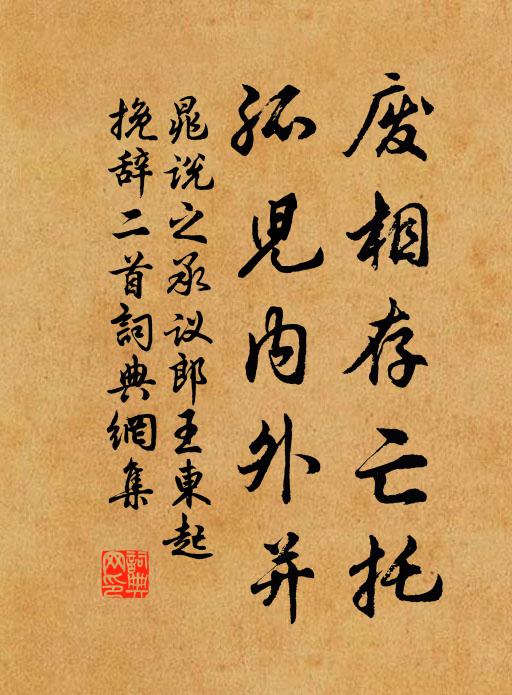 废相存亡托
孤児内外并
晁说之承议郎王東起
挽辞二首詞典網集
詞典网印